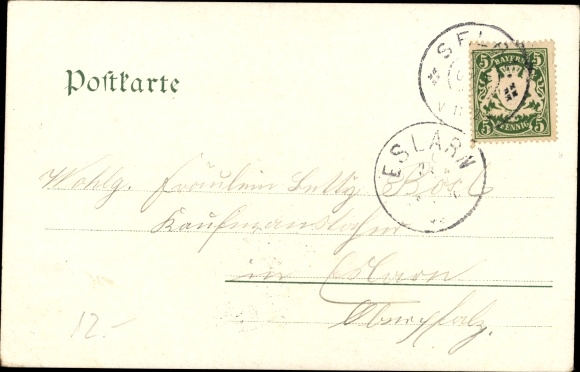 Postkarte
SEL
5 BAYERN 5
5 PFENNIG 5
ESLARN
Wohlg. Fräulein Betty
Kaufmannstochter
in Eslarn
Oberpfalz.
12.-